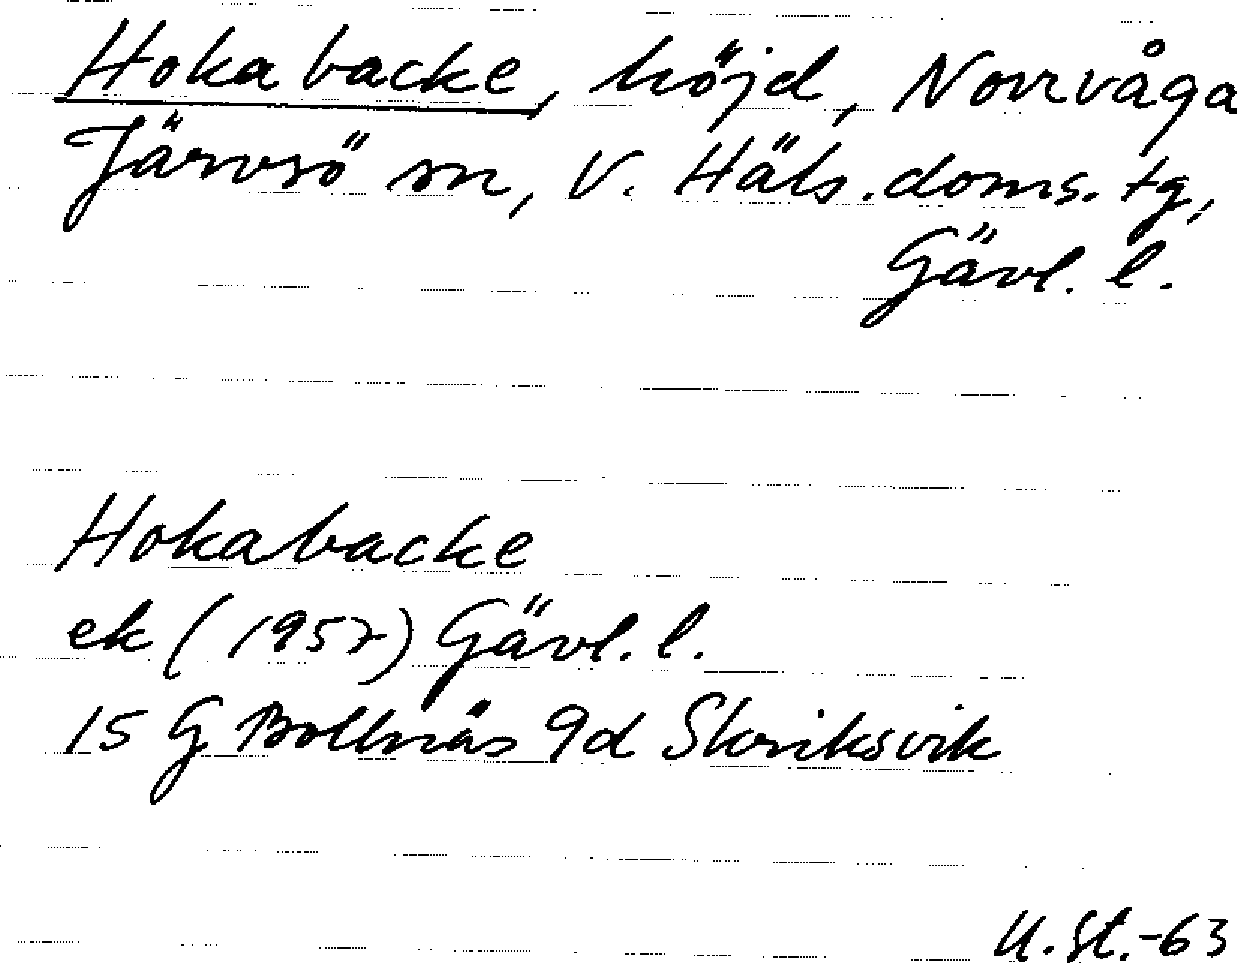 Hokabacke, höjd, Norrvåga
Järvsö sn, V. Häls. doms. tg,
Gävl. l.
Hokabacke
ek (1957) Gävl. l.
15 G Bollnäs 9d Skriksvik
U. St.-63